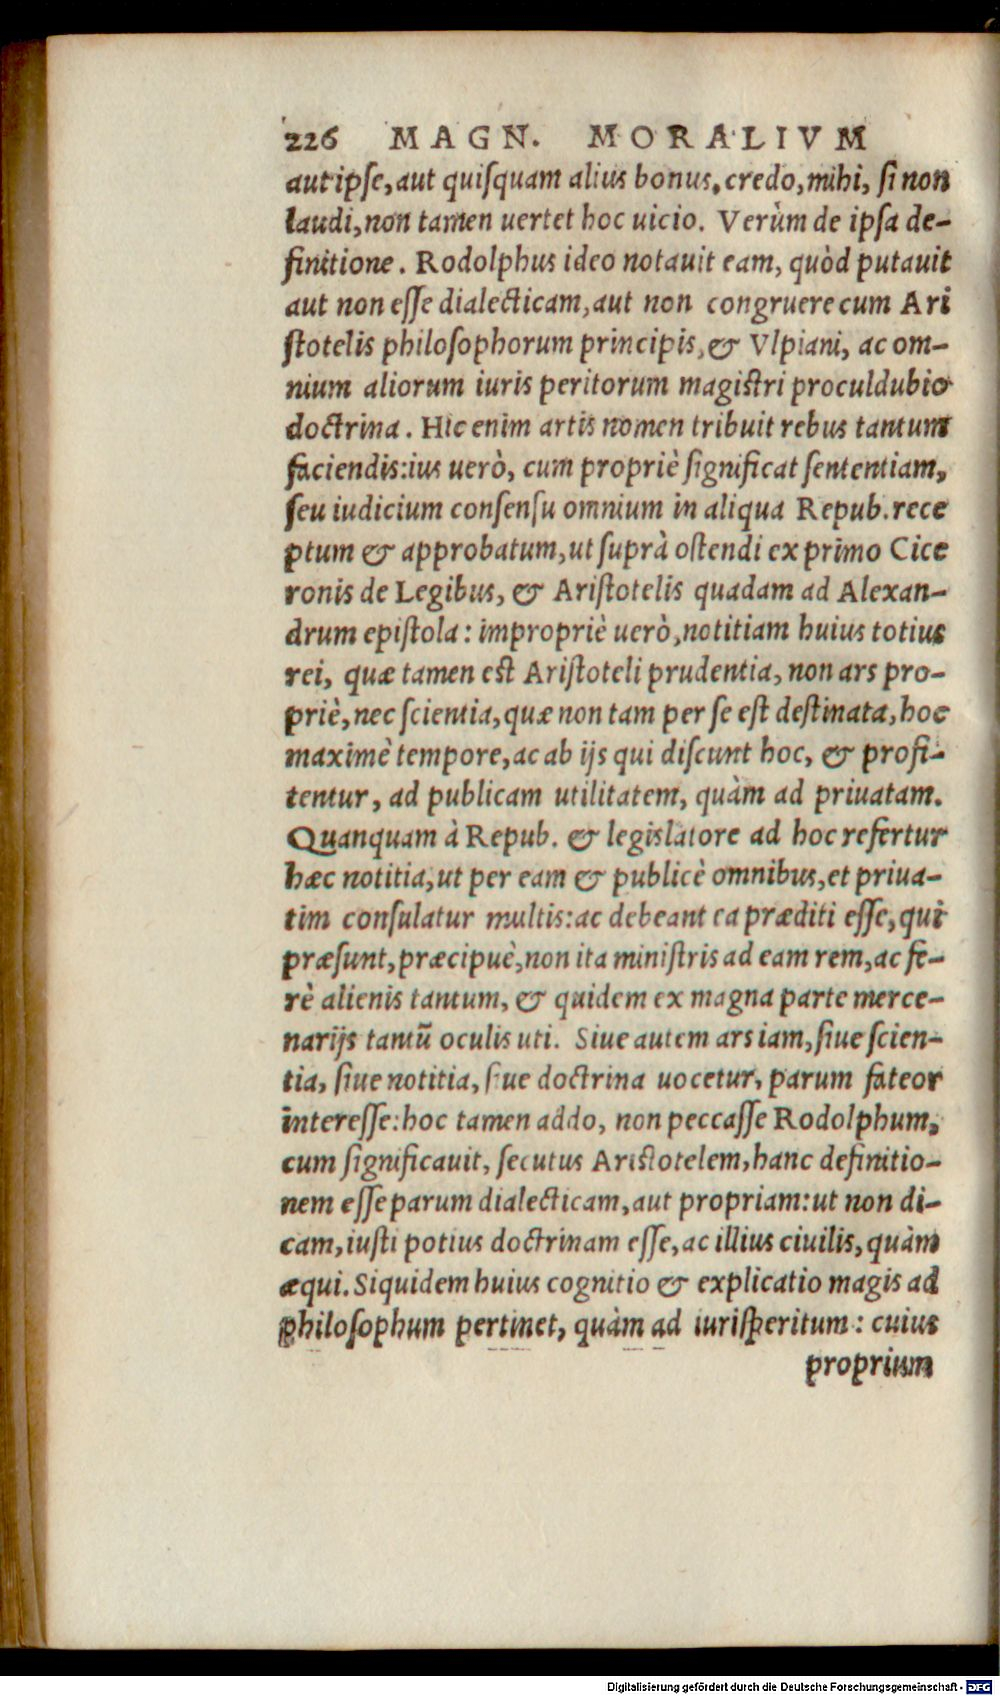 226 MAGN. MORALIVM
aut ipſe, aut quiſquam alius bonus, credo, mihi, ſi non
laudi, non tamen uertet hoc uicio. Verùm de ipſa de-
finitione. Rodolphus ideo notauit eam, quòd putauit
aut non eſſe dialecticam, aut non congruere cum Ari
ſtotelis philoſophorum principis, & Vlpiani, ac om-
nium aliorum iuris peritorum magiſtri proculdubio
doctrina. Hic enim artis nomen tribuit rebus tantum
faciendis: ius uerò, cum propriè ſignificat ſententiam,
ſeu iudicium conſenſu omnium in aliqua Repub. rece
ptum & approbatum, ut ſuprà oſtendi ex primo Cice
ronis de Legibus, & Ariſtotelis quadam ad Alexan-
drum epiſtola: impropriè uerò, notitiam huius totius
rei, quæ tamen eſt Ariſtoteli prudentia, non ars pro-
priè, nec ſcientia, quæ non tam per ſe eſt deſtinata, hoc
maximè tempore, ac ab ijs qui diſcunt hoc, & profi-
tentur, ad publicam utilitatem, quàm ad priuatam.
Quanquam à Repub. & legislatore ad hoc refertur
hæc notitia, ut per eam & publicè omnibus, et priua-
tim conſulatur multis: ac debeant ea præditi eſſe, qui
præſunt, præcipuè, non ita miniſtris ad eam rem, ac fe-
rè alienis tantum, & quidem ex magna parte merce-
narijs tantũ oculis uti. Siue autem ars iam, ſiue ſcien-
tia, ſiue notitia, ſiue doctrina uocetur, parum fateor
intereſſe: hoc tamen addo, non peccaſſe Rodolphum,
cum ſignificauit, ſecutus Ariſtotelem, hanc definitio-
nem eſſe parum dialecticam, aut propriam: ut non di-
cam, iuſti potius doctrinam eſſe, ac illius ciuilis, quàm
æqui. Siquidem huius cognitio & explicatio magis ad
philoſophum pertinet, quàm ad iuriſperitum: cuius
proprium
Digitalisierung gefördert durch die Deutsche Forschungsgemeinschaft - DFG